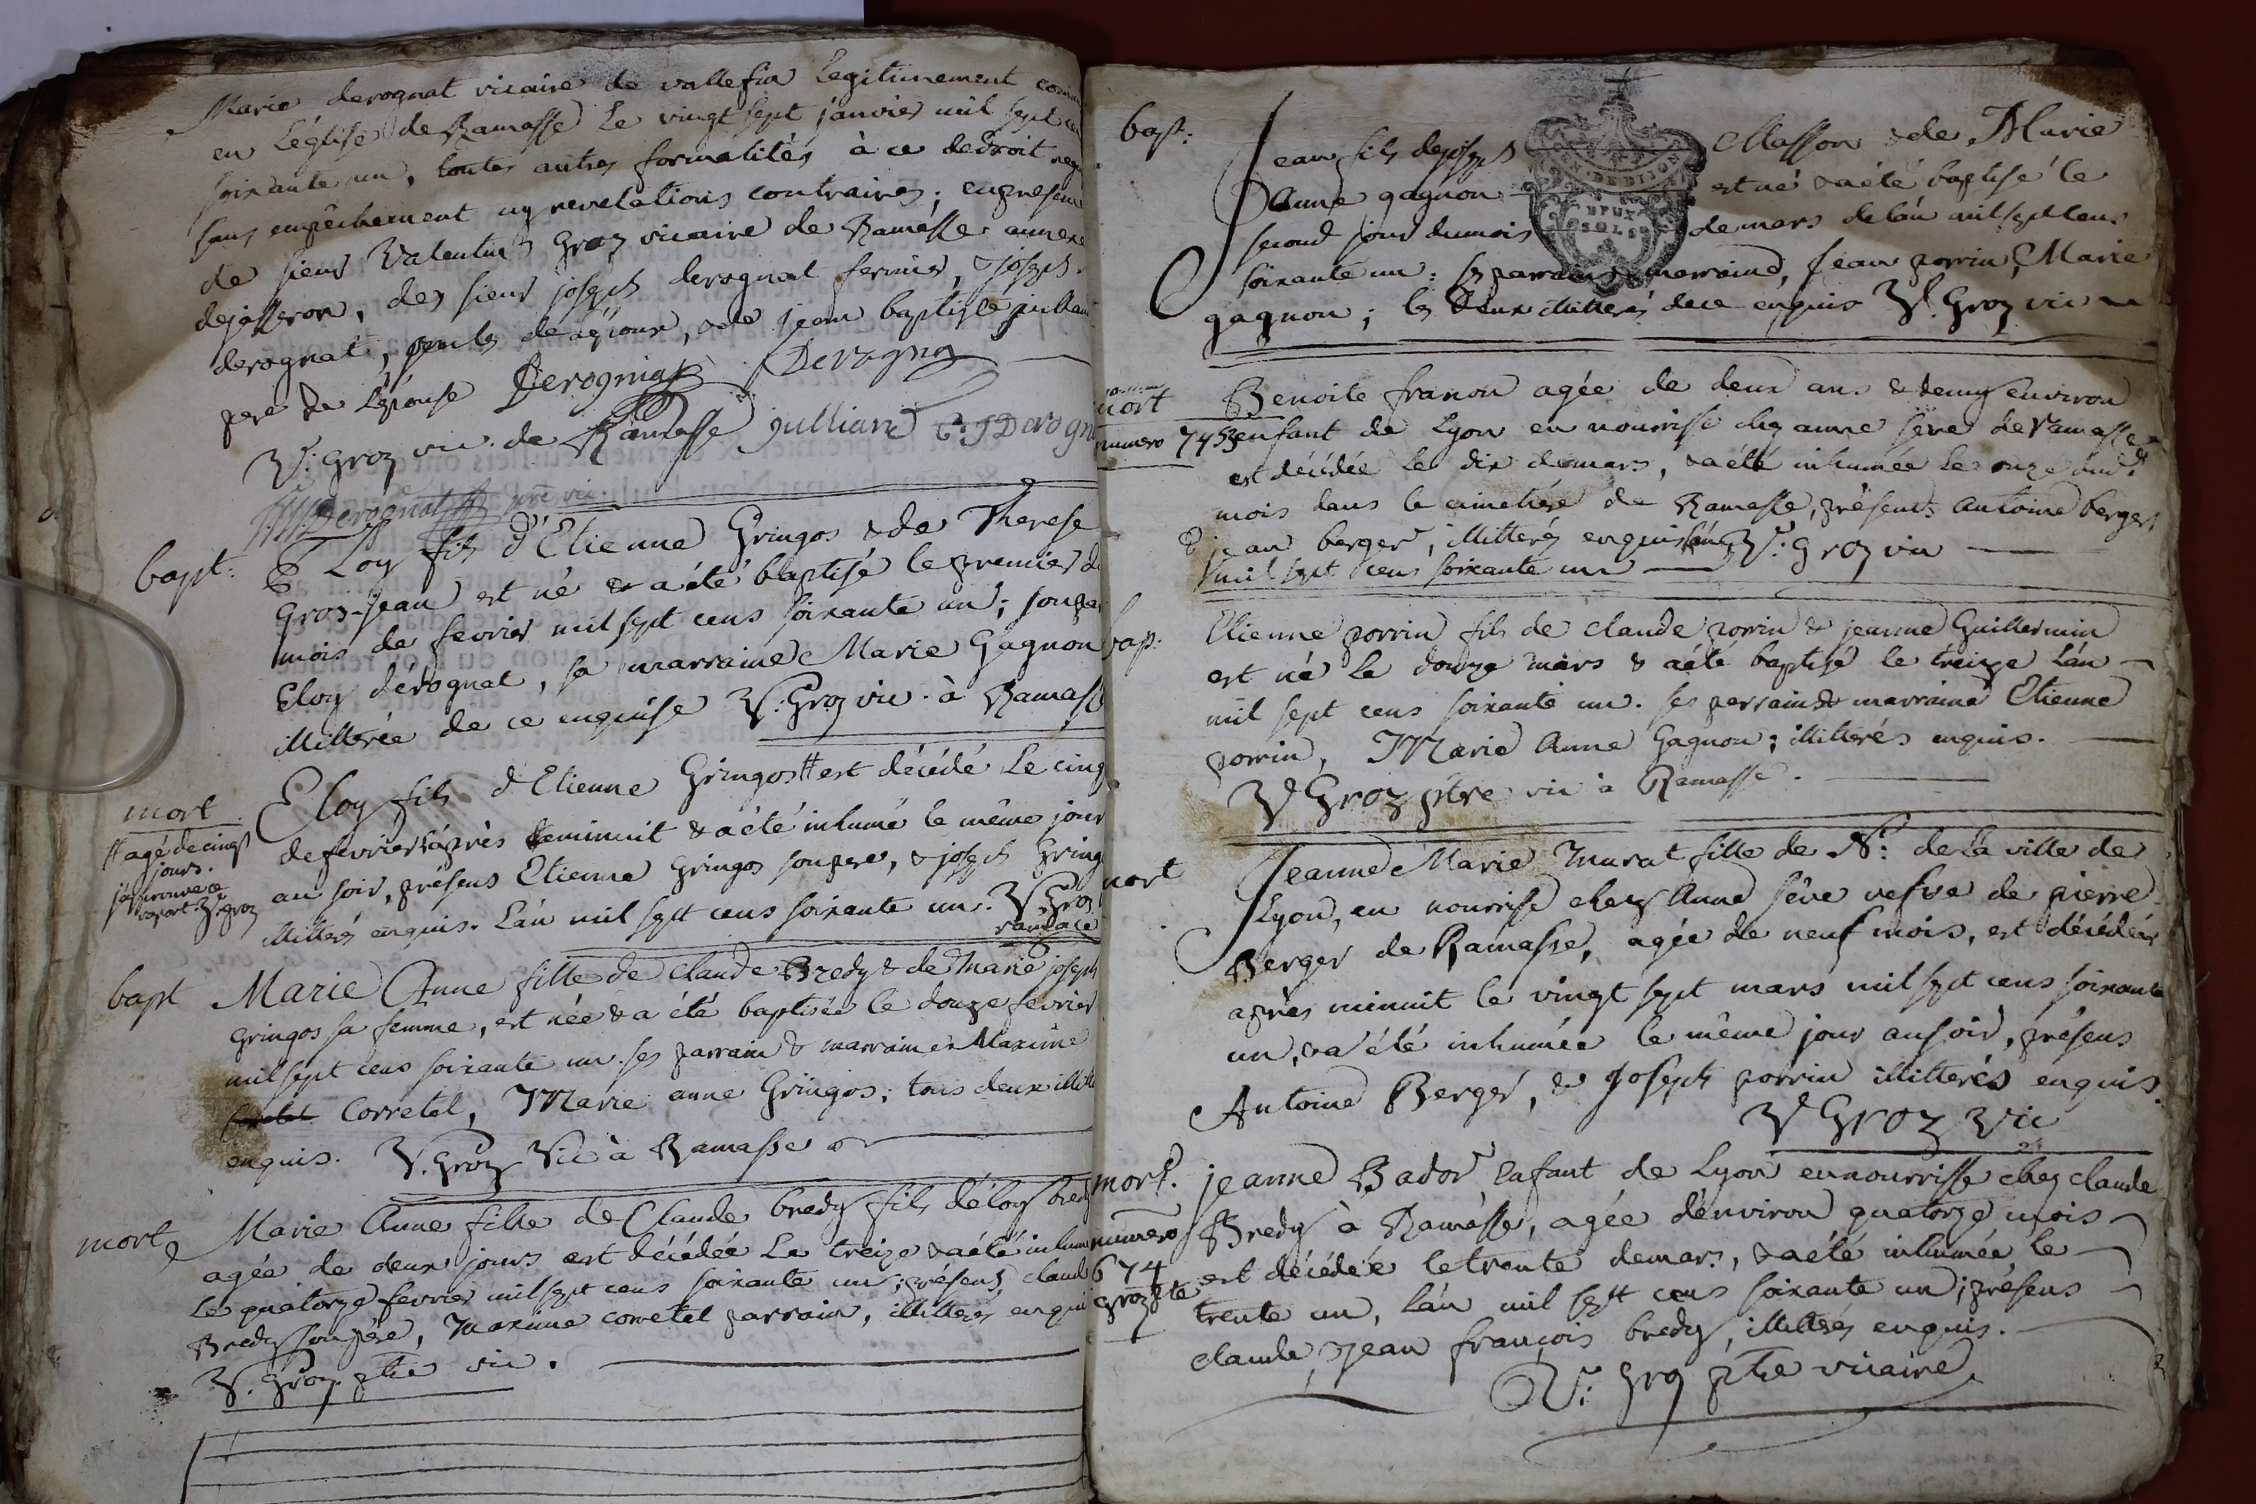 Marie derognat vicaire de vallefin legitimement
en L'église de Ramasse Le vingt sept janvier mil sept
soixante un, toutes autres formalités à ce de droit
sans empêchement ny revelations contraires; en presen
de sieur Valentin Groz vicaire de Ramasse annexe
dejasseron, des sieur joseph derognat fermier, Joseph
derognat, & de jean baptiste jullian
pere de L'épouse Derognat Derogna
V: Groz vic. de Ramasse jullian C: J Derogn
Derognat ptre vic.
bapt:
E Loy fils d'Etienne Gringos & de Therese
Gros-jean est né & a été baptisé le premier d
mois de fevrier mil sept cens soixante un; son par
Eloy dérognat, sa marraine Marie Gagnon
illitterée de ce enquise V: Groz vic. à Ramass
mort
# agé de cinq
jours.
j'approuve ce
raport V. groz
Eloy fils d'Etienne Gringos # est décédé Le cinq
de fevrier après minuit & a été inhumé le même jour
au soir, présens Etienne Gringos son pere, & joseph Gring
illitterés enquis. L'án mil sept cens soixante un. V. Groz
ramace
bapt
Marie Anne fille de claude Bredy & de marie joseph
Gringos sa femme, est née & a été baptisée le douze fevrier
mil sept cens soixante un. ses parrain & marraine Maxime
Corretel, Marie anne Gringos; tous deux illitte
enquis. V. Groz Vic à Ramasse
mort
Marie Anne fille de Claude bredy fils déloy bred
agée de deux jours est décédée Le treize & a été inhum
Le quatorze fevrier mil sept cens soixante un; présens claude
Bredy son père, maxime corretel parrain, illitterés enqui
V. Groz ptre vic.
bapt:
Jean fils de joseph Masson & de Marie
Anne gagnon est né & a été baptisé le
second jour du mois de mars de l'án mil sept cens
soixante un: ses parrain & marraine, Jean porrin, Marie
gagnon; les deux illitterés de ce enquis V. Groz vic
mort
numero 745
Benoite franon agée de deux ans & demy environ
enfant de Lyon en nourrise chez anne sève de Ramasse
est décédée Le dix de mars, & a été inhumée Le onze dud.t
mois dans le cimetiére de Ramasse, présens antoine berger,
& jean berger, illitterés enquis V: Groz vic
mil sept cens soixante un
bap:
Etienne porrin fils de claude porrin & jeanne Guillermin
est né Le douze mars & a été baptisé le treize L'án
mil sept cens soixante un. ses parrain & marraine Etienne
porrin, Marie Anne Gagnon; illitterés enquis.
V Groz ptre vic à Ramasse.
mort
Jeanne Marie Murat fille de N: de la ville de
Lyon, en nourrise chez Anne sève vefve de pierre
Berger de Ramasse, agée de neuf mois, est décédée
après minuit le vingt sept mars mil sept cens soixante
un, & a été inhumée le même jour au soir, présens
Antoine Berger, & Joseph porrin illitterés enquis.
V Groz Vic
mort.
numero
674
groz pte
jeanne Bador enfant de Lyon en nourrisse chez claude
Bredy à Ramasse, agée d'environ quatorze mois
est décédée le trente de mars, & a été inhumée le
trente un, L'án mil sept cens soixante un; présens
claude, & Jean françois bredy, illitterés enquis.
V: Groz ptre vicaire